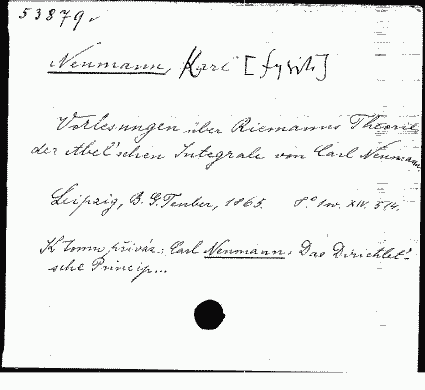 53879
Neumann, Karl [fysik]
Vorlesungen über Riemanns Theorie
der Abel'schen Integrale von Carl Neumann.
Leipzig, B. G. Teuber, 1865. 8° 1w. XIV. 514.
K tomu přiváz.: Carl Neumann: Das Dirichlet'-
sche Princip...